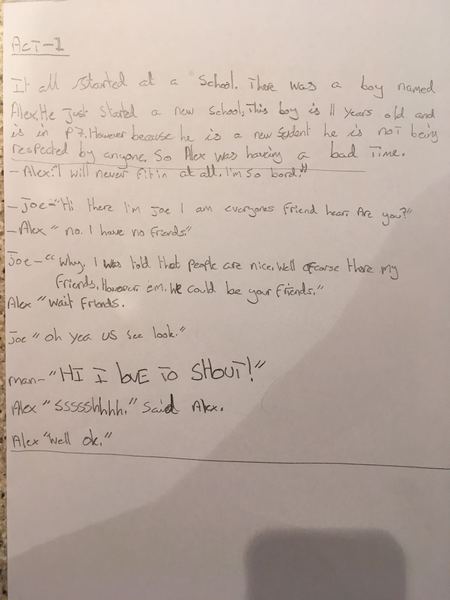 ACT-1
It all started at a School. There was a boy named
Alex. He just started a new school, This boy is 11 years old and
is in P7. However because he is a new student he is not being
respected by anyone. So Alex was having a bad Time.
- Alex "I will never fit in at all. I'm so bord."
- Joe - "Hi there I'm Joe I am everyones friend hear. Are you?"
- Alex "no. I have no friends."
Joe - "Why. I was told that people are nice. Well ofcarse there my
friends. However em. We could be your friends."
Alex "Wait friends.
Joe "oh yea us see look."
man- "HI I LOVE TO SHOUT!"
Alex "Ssssshhhh." Said Alex.
Alex "Well ok."